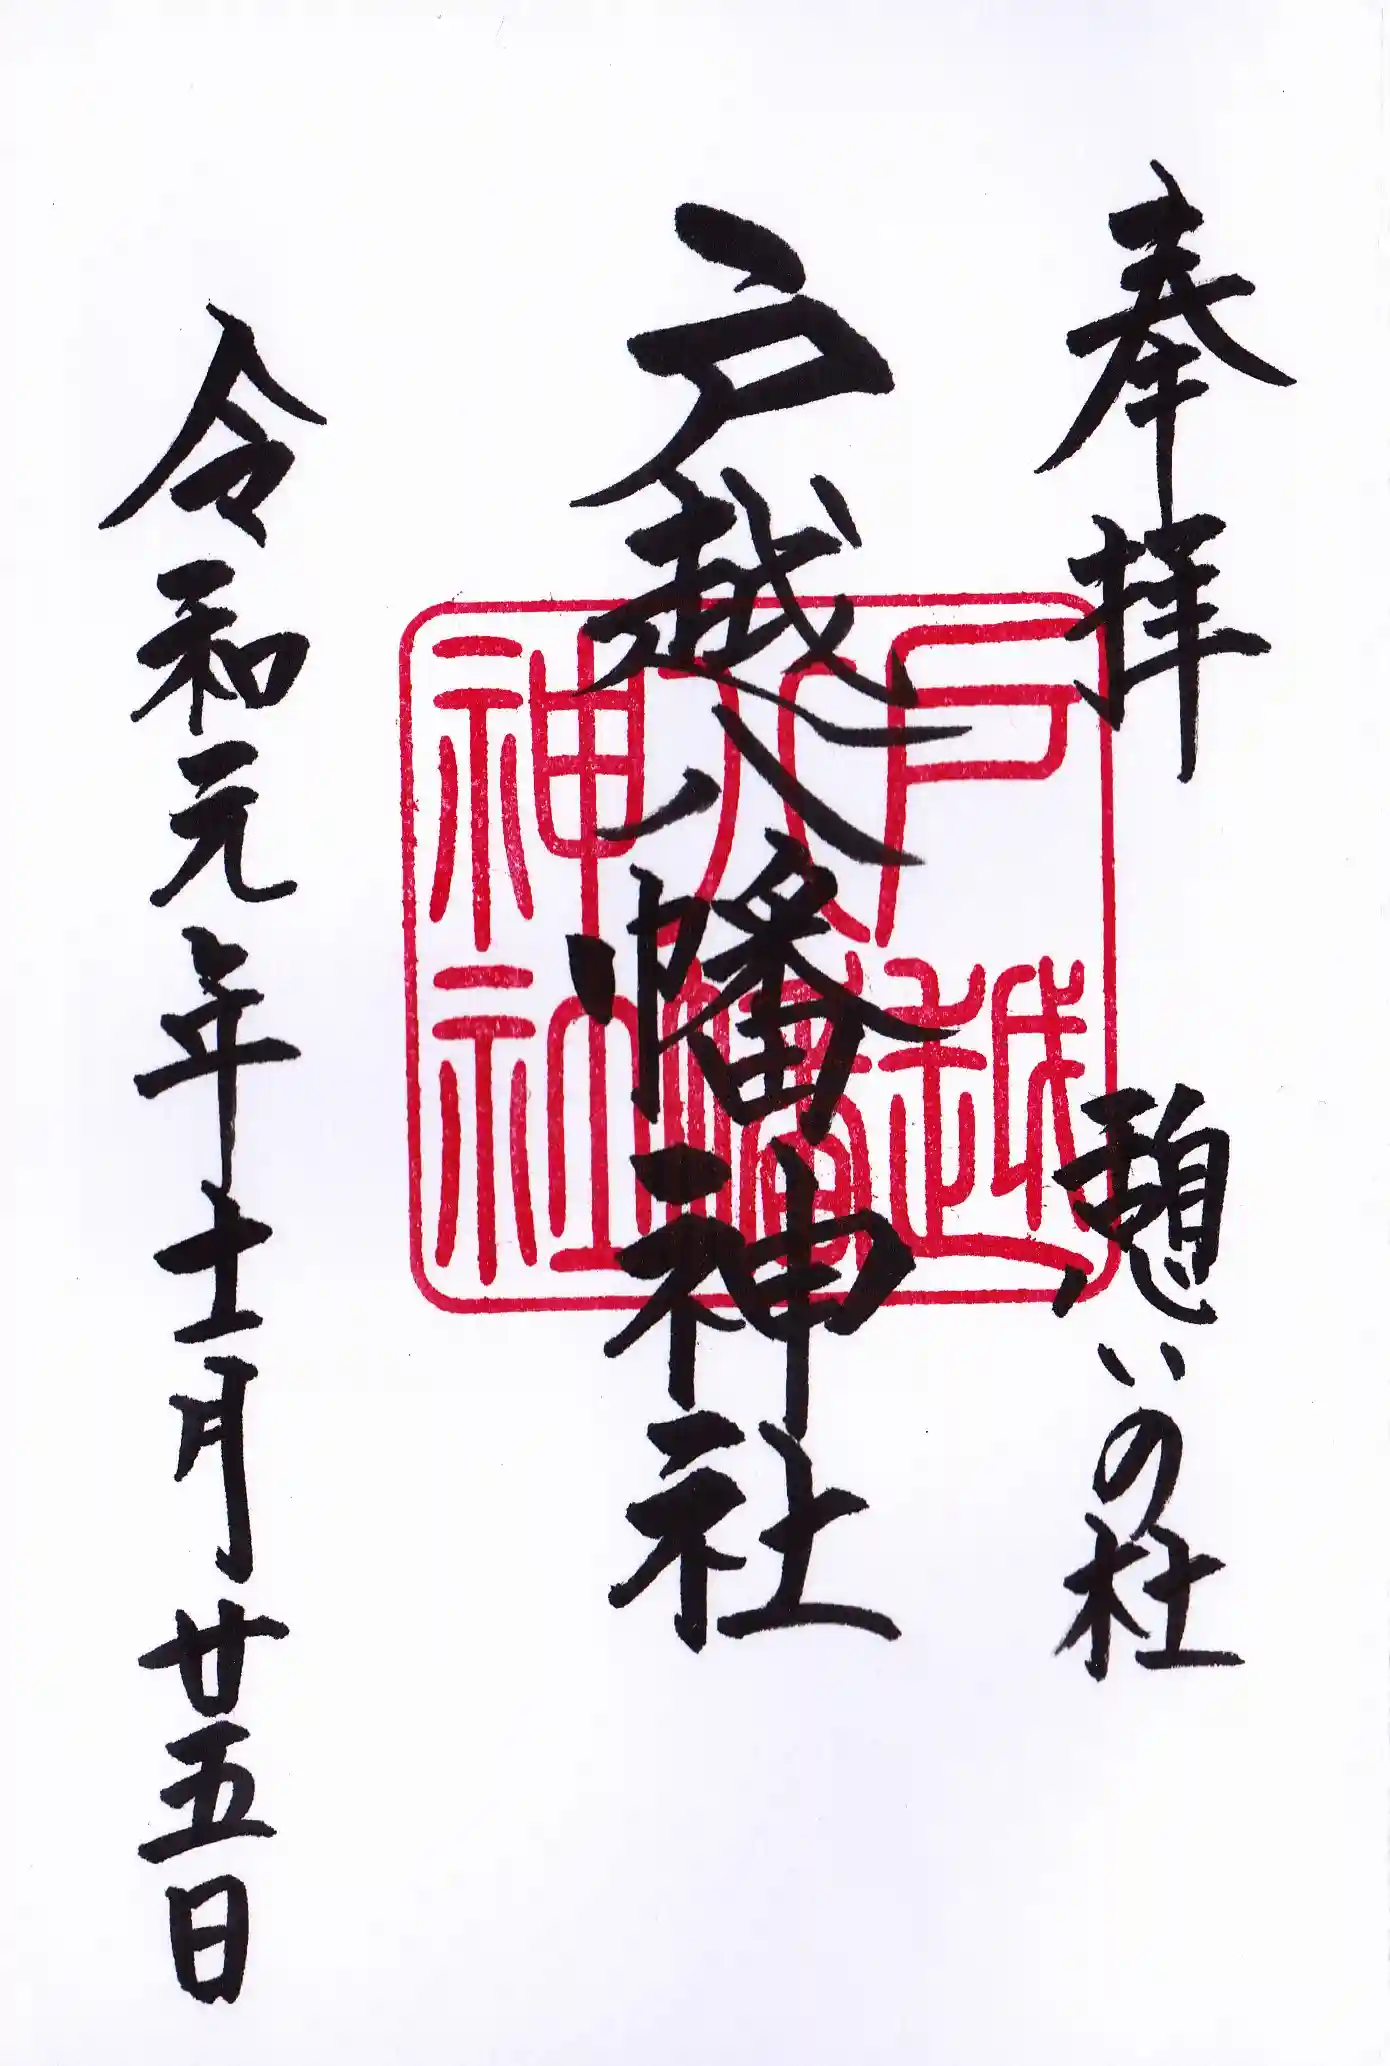 奉拝　憩いの杜
戸越八幡神社
令和元年十一月廿五日
戸越
八幡
神社